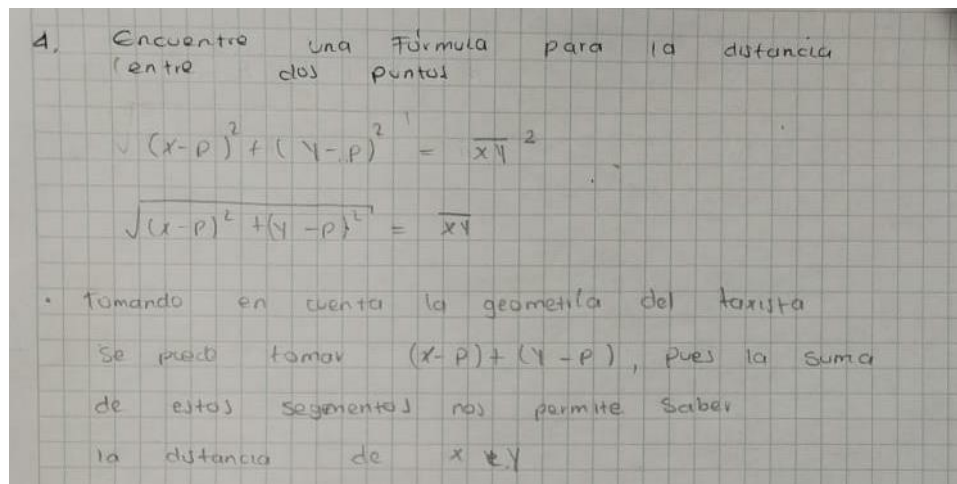 4. Encuentre una Fórmula para la distancia
entre dos puntos
(x-p)² + (y-p)² = \overline{xy}²
√(x-p)² + (y-p)² = \overline{xy}
• Tomando en cuenta la geometría del taxista
se tomar (x-p) + (y-p), pues la suma
de estos segmentos nos permite saber
la distancia de x y